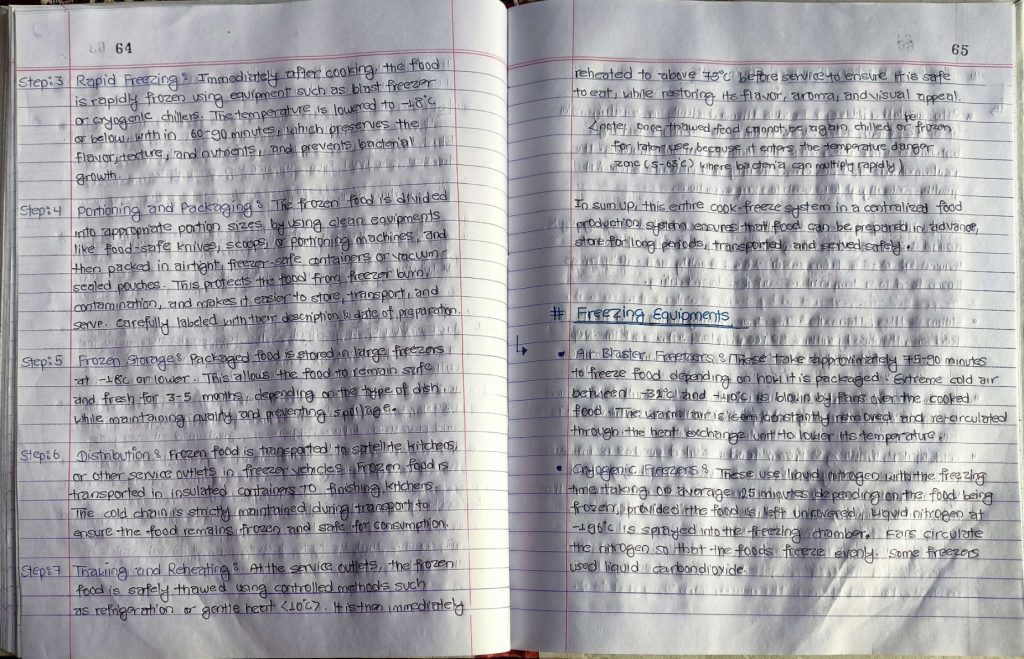 64
Step:3 Rapid Freezing: Immediately after cooking, the food
is rapidly frozen using equipment such as blast freezer
or cryogenic chillers. The temperature is lowered to -18°c
or below within 60-90 minutes, which preserves the
flavor, texture, and nutrients, and prevents bacterial
growth.
Step:4 Portioning and Packaging: The frozen food is divided
into appropriate portion sizes by using clean equipments
like food-safe knives, scoops, or portioning machines, and
then packed in airtight, freezer-safe containers or vacuum
sealed pouches. This protects the food from freezer burn,
contamination, and makes it easier to store, transport, and
serve. Carefully labeled with their description & date of preparation.
Step:5 Frozen Storage: Packaged food is stored in large freezers
at -18c or lower. This allows the food to remain safe
and fresh for 3-5 months, depending on the type of dish
while maintaining quality and preventing spoilage.
Step:6 Distribution: Frozen food is transported to satellite kitchens
or other service outlets in freezer vehicles. Frozen food is
transported in insulated containers to finishing kitchens.
The cold chain is strictly maintained during transport to
ensure the food remains frozen and safe for consumption.
Step:7 Thawing and Reheating: At the service outlets, the frozen
food is safely thawed using controlled methods such
as refrigeration or gentle heat <10°c>. It is then immediately
65
reheated to above 75°c before service to ensure it is safe
to eat, while restoring its flavor, aroma, and visual appeal.
<note: once thawed food cannot be again chilled or refrozen
for later use, because it enters the temperature danger
zone (5-63c) where bacteria can multiply rapidly)
In sum up, this entire cook-freeze system in a centralized food
production system ensures that food can be prepared in advance,
store for long periods, transported, and served safely.
# Freezing Equipments
• Air Blaster Freezers: These take approximately 75-90 minutes
to freeze food depending on how it is packaged. Extreme cold air
between -32°c and is blown by fans over the cooked
food. The warm air is constantly removed and re-circulated
through the heat exchange unit to lower its temperature.
• Cryogenic Freezers: These use liquid nitrogen with the freezing
time taking on average 25 minutes, depending on the food being
frozen, provided the food is left uncovered. Liquid nitrogen at
-196°c is sprayed into the freezing chamber. Fans circulate
the nitrogen so that the foods freeze evenly. Some freezers
used liquid carbondioxide.